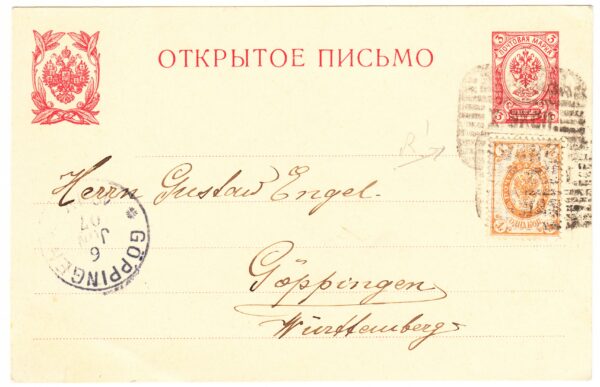 ОТКРЫТОЕ ПИСЬМО
ПОЧТОВАЯ МАРКА
3 3
3 3
Herrn Gustav Engel.
Göppingen
Württemberg
GÖPPINGEN
6
JUN
07